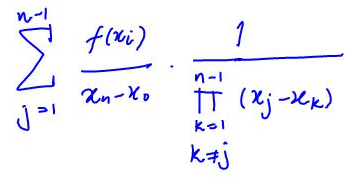 \sum_{j=1}^{n-1} \frac{f(x_i)}{x_n - x_0} \cdot \frac{1}{\prod_{\substack{k=1 \\ k \neq j}}^{n-1} (x_j - x_k)}